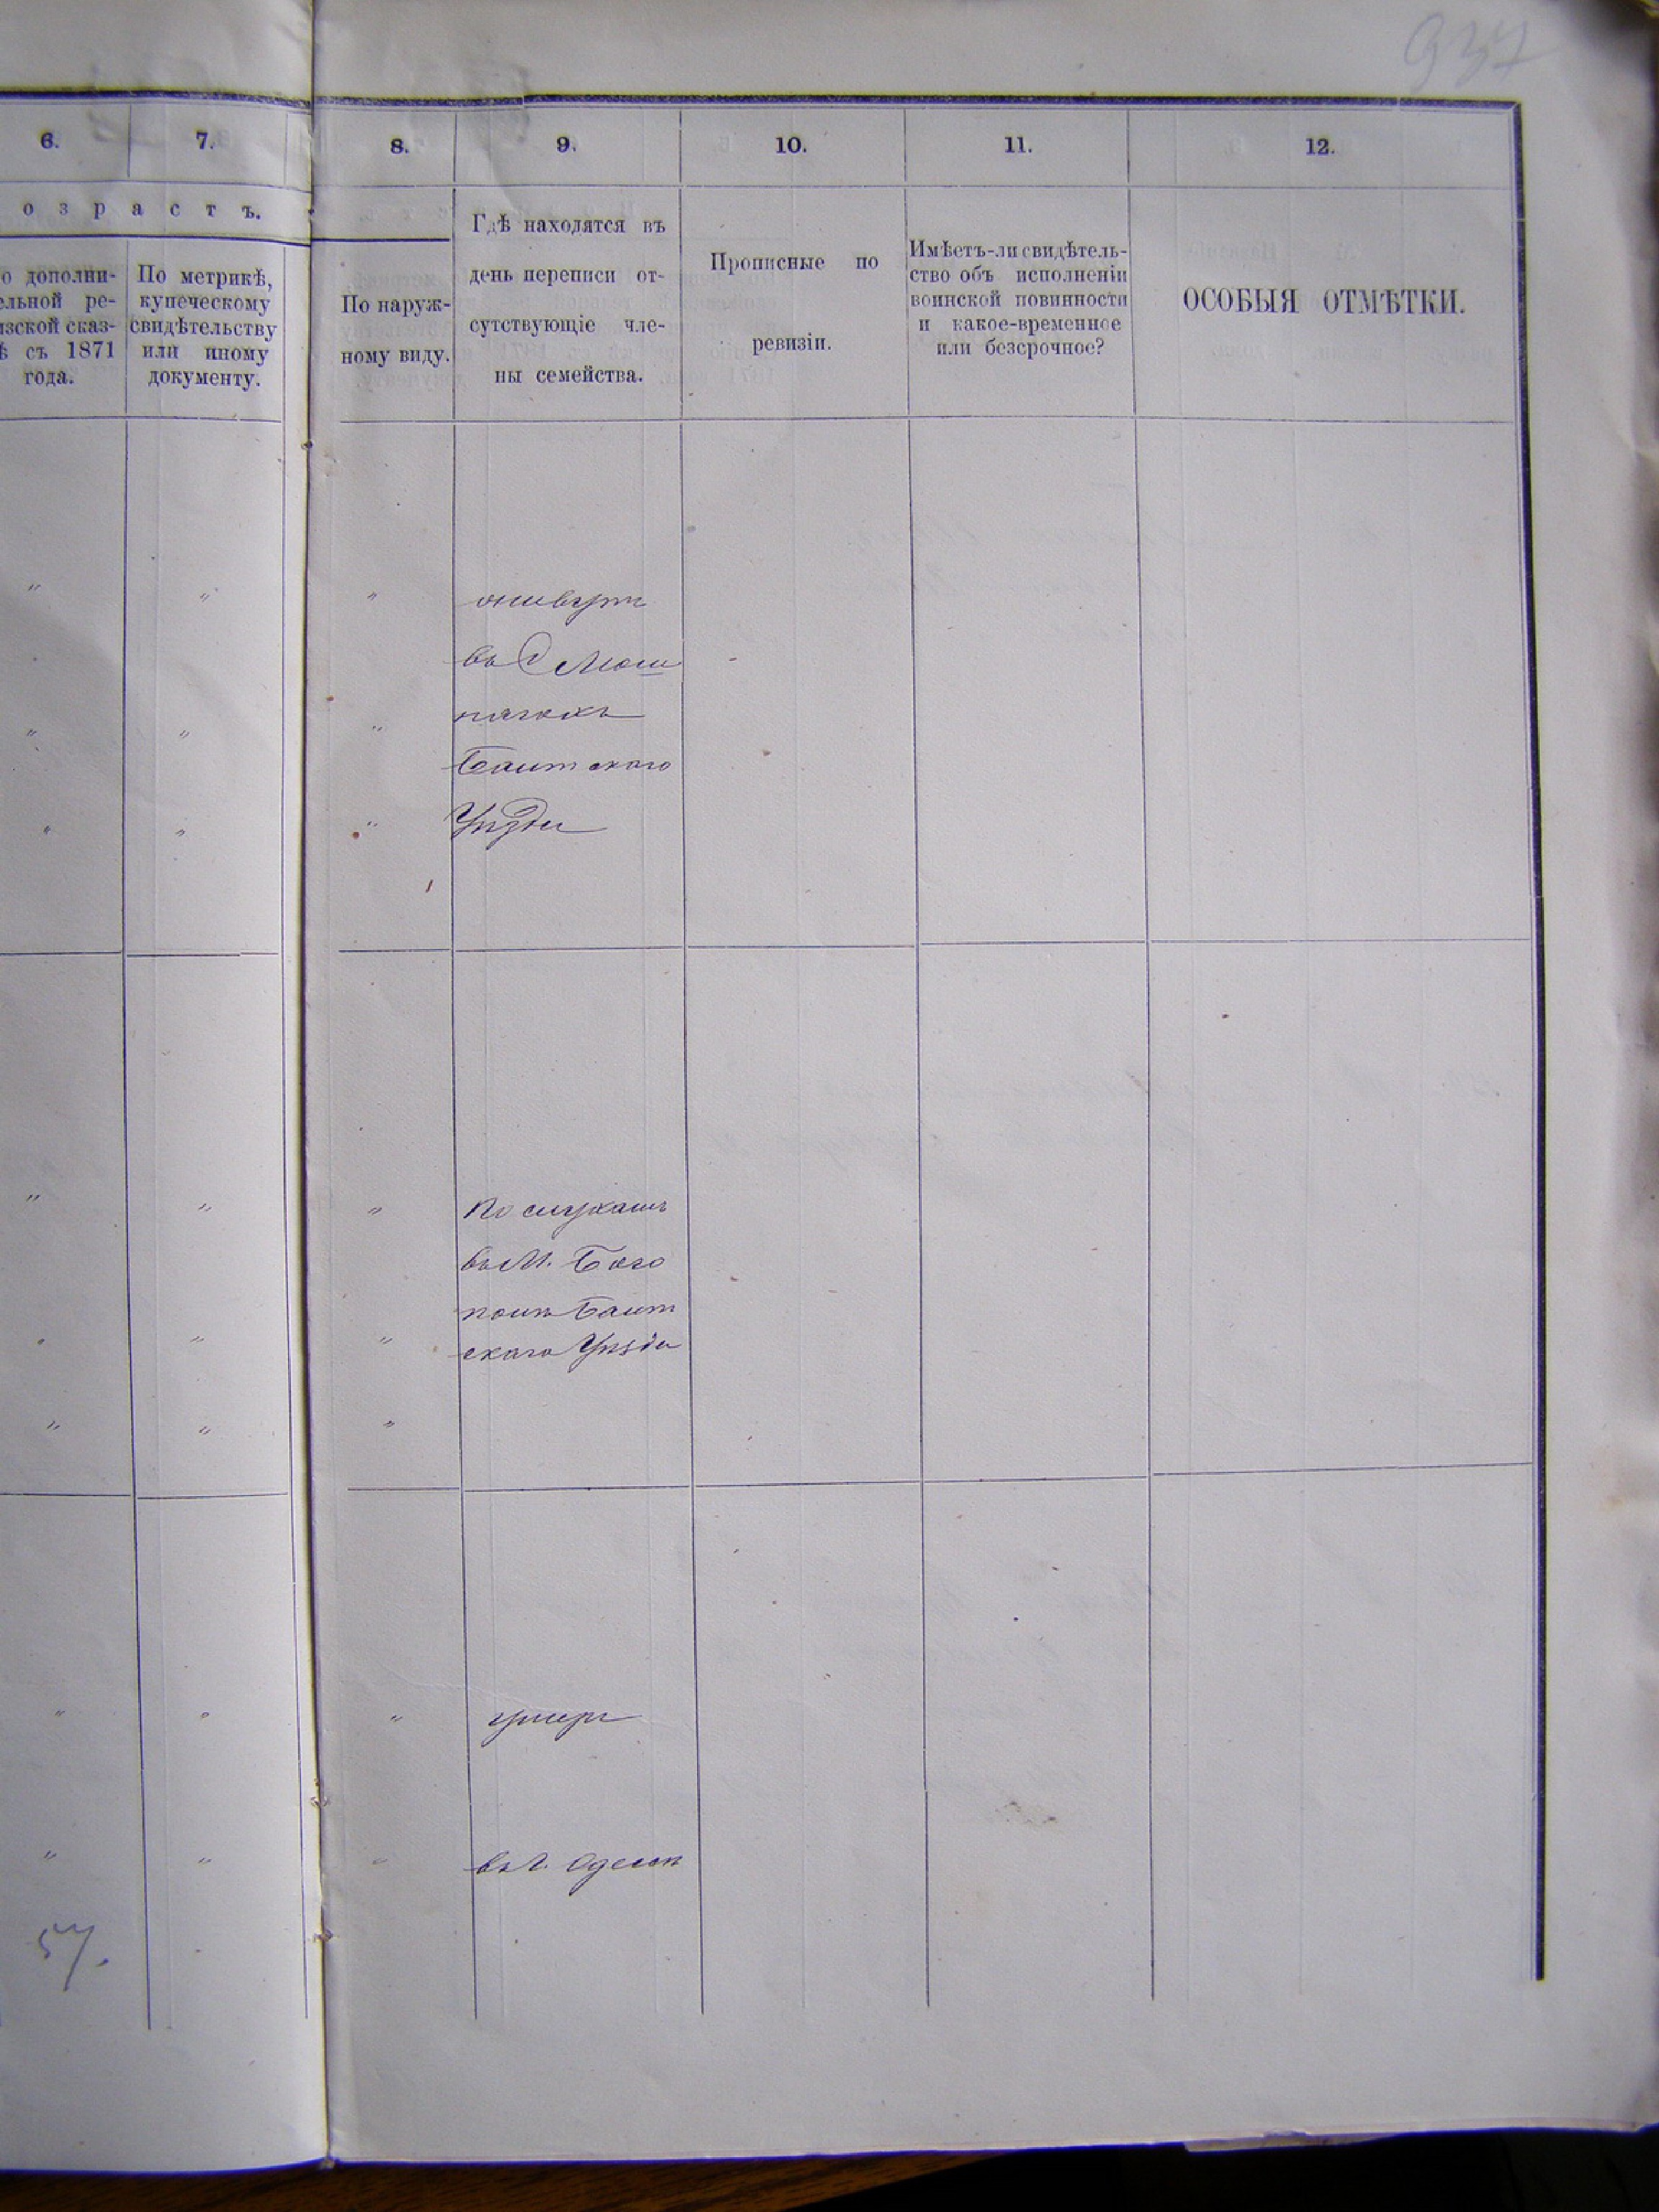 937
6. 7. 8. 9. 10. 11. 12.
озрастъ.
о дополни-
ельной ре-
изской сказ-
ѣ съ 1871
года.
По метрикѣ,
купеческому
свидѣтельству
или иному
документу.
По наруж-
ному виду.
Гдѣ находятся въ
день переписи от-
сутствующіе чле-
ны семейства.
Прописные по
ревизіи.
Имѣетъ-ли свидѣтель-
ство объ исполненіи
воинской повинности
и какое-временное
или безсрочное?
ОСОБЫЯ ОТМѢТКИ.
" " "
въ С
" " "
Балтскаго
" " " Уѣзда
" " "
въ М. Бого
полѣ Балт
" " " скаго Уѣзда
" " "
" " " умеръ
" " " въ г. Одессѣ
57.